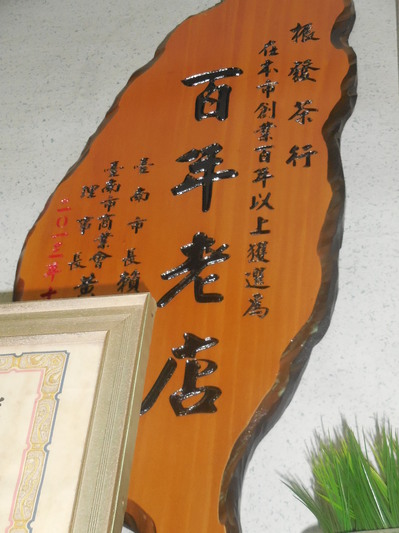 振發茶行
在本市創業百年以上獲選為
百年老店
臺南市長賴
臺南市商業會
理事長黃
二〇
年十